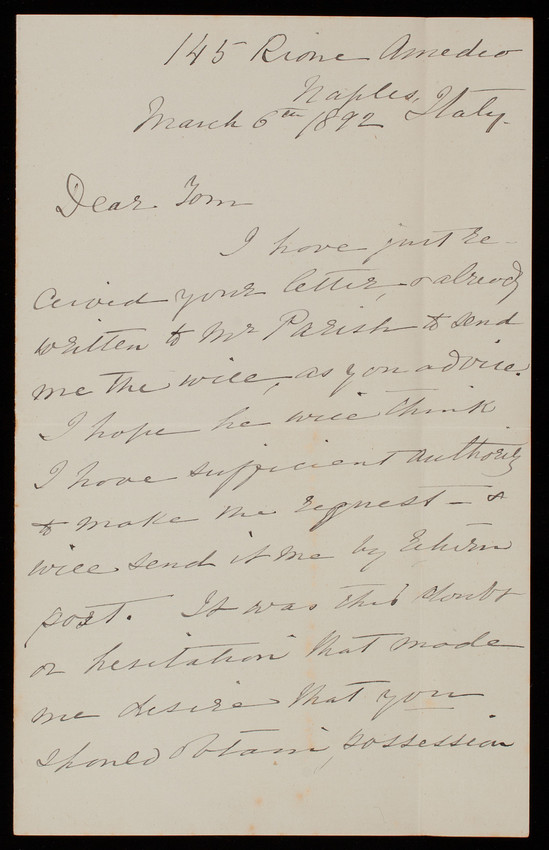 145 Rione Amedeo
Naples, Italy.
March 6th 1892
Dear Tom
I have just re-
ceived your letter, & already
written to Mr Parish to send
me the will, as you advise.
I hope he will think
I have sufficient authority
to make the request — &
will send it me by return
post. It was this doubt
or hesitation that made
me desire that you
should obtain possession